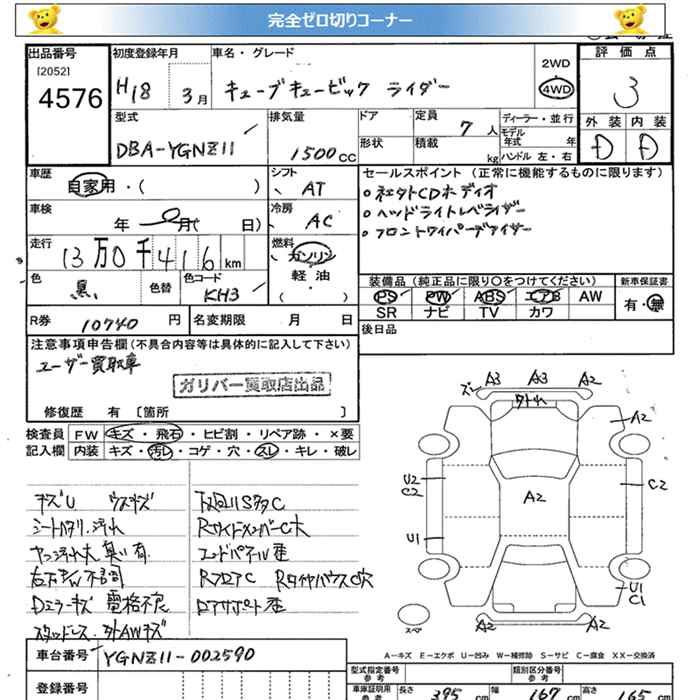 完全ゼロ切りコーナー
出品番号 初度登録年月 車名・グレード 2WD 評価点
[2052] H18 3月 キューブキュービック ライダー 4WD 3
4576
型式 排気量 ドア 定員 7人 ディーラー・並行 外装 内装
DBA-YGNZ11 1500cc 形状 積載 kg モデル年式 年 D D
ハンドル 左・右
車歴 シフト セールスポイント (正常に機能するものに限ります)
自家用・( ) AT 社外CDオーディオ
車検 年 0月( 日) 冷房 AC ヘッドライトレベライザー
走行 13万0千416km 燃料 ガソリン フロントワイパーデアイザー
軽・油
色 黒 色替 色コード KH3 ( ) 装備品 (純正品に限り〇をつけてください) 新車保証書
PS PW ABS エアB AW 有・無
SR ナビ TV カワ
R券 10740円 名変期限 月 日 後日品
注意事項申告欄(不具合内容等は具体的に記入して下さい)
ユーザー買取車
ガリバー買取店出品
修復歴 有 [箇所 ]
検査員 FW キズ・飛石・ヒビ割・リペア跡・×要
記入欄 内装 キズ・汚レ・コゲ・穴・スレ・キレ・破レ
キズU ウスキズ 下廻りS多C
シートヘタリ、汚れ RサイドメンバーC大
ヤニ汚れ大 臭い有 エンドパネル歪
RフロアC RタイヤハウスC穴
Dミラーキズ 電格不良 ロアサポート歪
スタッドレス・外AWキズ
A3 A3 A2
外れ
A2
U2
C2
C2
A2
U1
U1
C1
スペア
A2 A2
A-キズ E-エクボ U-凹み W-補修跡 S-サビ C-腐食 XX-交換済
車台番号 YGNZ11-002590
登録番号
型式指定番号 参考 類別区分番号 参考
車庫証明用 参考 長さ 395 cm 幅 167 cm 高さ 165 cm